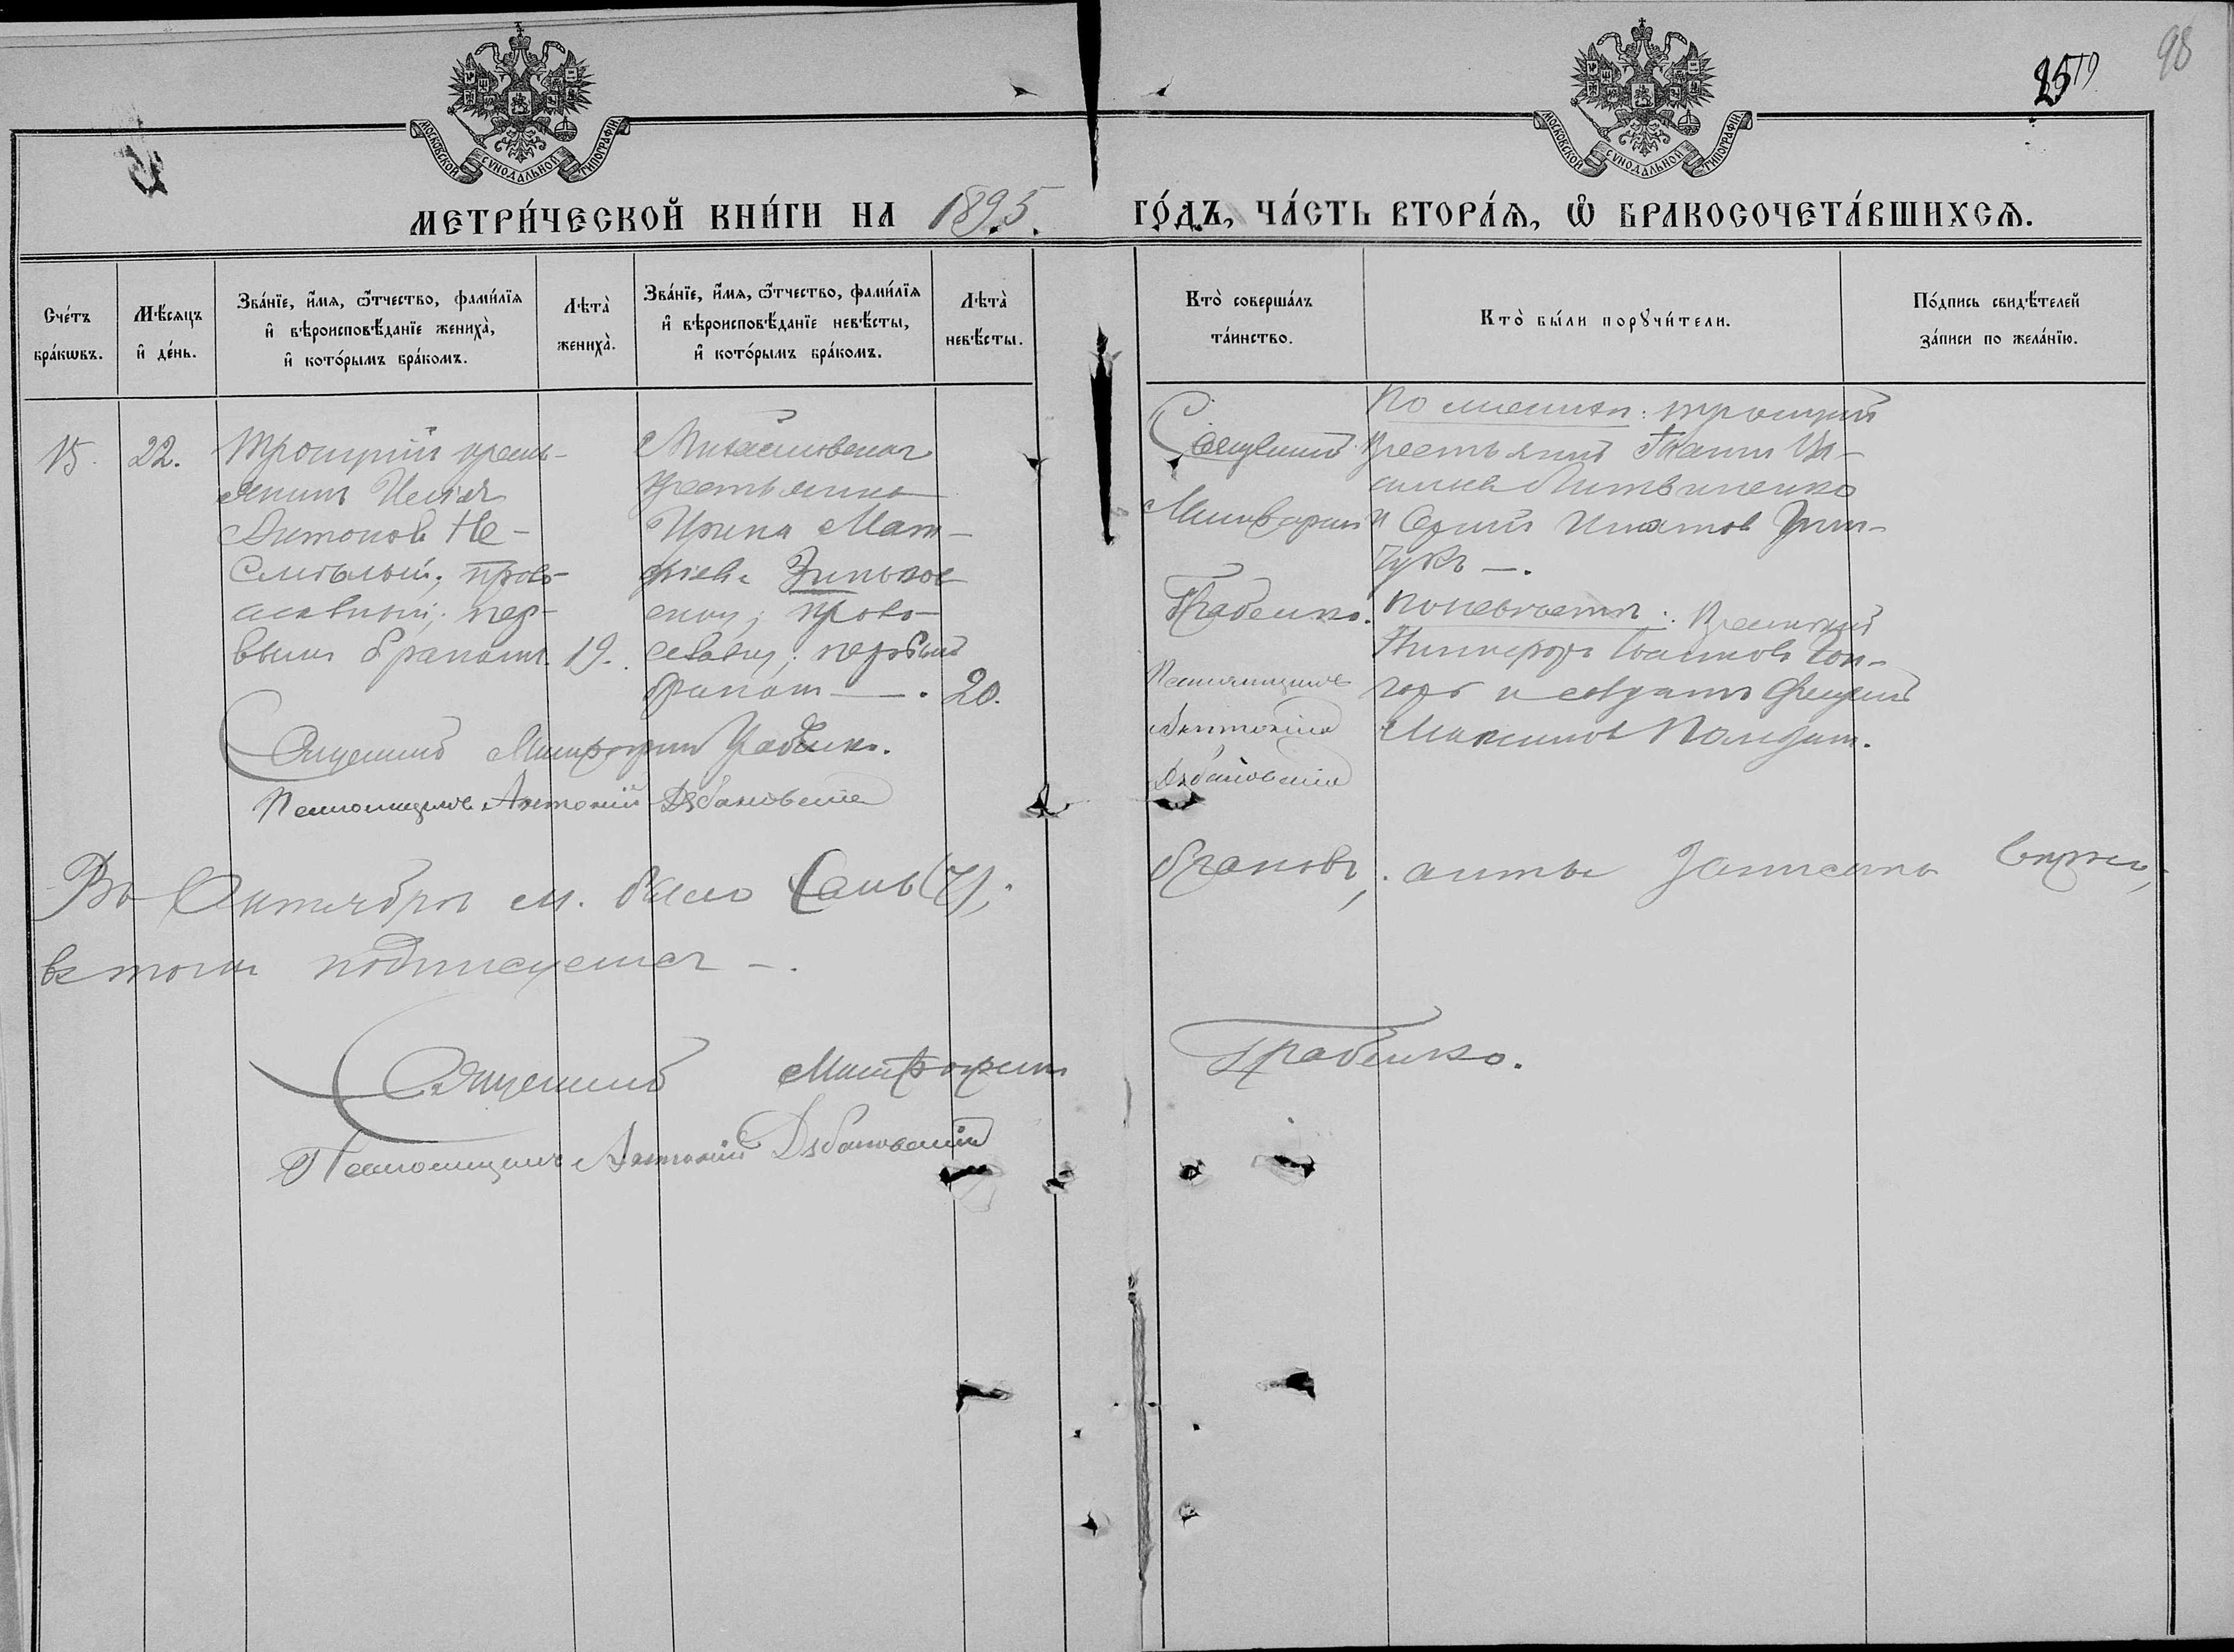 98
25
МОСКОВСКОЙ СѴНОДАЛЬНОЙ ТИПОГРАФІИ
МОСКОВСКОЙ СѴНОДАЛЬНОЙ ТИПОГРАФІИ
МЕТРИ́ЧЕСКОЙ КНИ́ГИ НА 1895. ГО́ДЪ, ЧА́СТЬ ВТОРА́Ѧ, Ѽ БРАКОСОЧЕТА́ВШИХСѦ.
Сче́тъ бра́кѡвъ.
Мѣ́сяцъ и҆ де́нь.
Зва́нїе, и҆́мя, ѻ҆́тчество, фами́лїя
и҆ вѣроисповѣ́данїе жениха̀,
и҆ кото́рымъ бра́комъ.
Лѣта̀ жениха̀.
Зва́нїе, и҆́мя, ѻ҆́тчество, фами́лїя
и҆ вѣроисповѣ́данїе невѣ́сты,
и҆ кото́рымъ бра́комъ.
Лѣта̀ невѣ́сты.
Кто̀ соверша́лъ
та́инство.
Кто̀ бы́ли порꙋчи́тели.
По́дпись свидѣ́телей
за́писи по жела́нїю.
15. 22.
Троицкій кресть-
янинъ Илія
Антоновъ Не-
смѣлый; право-
славный; пер-
вымъ бракомъ. 19.
Михайловская
крестьянка
Ирина Мат-
фіева Зиньков
ская; право-
славная; первымъ
бракомъ —. 20.
Священникъ
Митрофанъ
Грабенко.
Псаломщикъ
Антоній
Дзбановскій
По женихѣ: троицкій
крестьянинъ Іоаннъ
Литвиненко
и
чукъ —.
По невѣстѣ:
Никифоръ
и солдатъ
Максимовъ
Священникъ Митрофанъ Грабенко.
Псаломщикъ Антоній Дзбановскій
Въ Октябрѣ м. было семь (7) браковъ; акты записаны вѣрно,
въ томъ подписуемся —.
Священникъ Митрофанъ Грабенко.
Псаломщикъ Антоній Дзбановскій